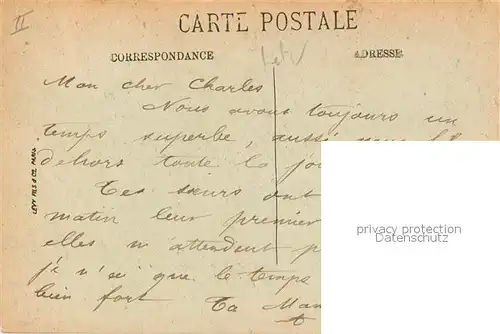 II
CARTE POSTALE
CORRESPONDANCE
ADRESSE
Mon cher Charles
Nous avons toujours un
temps superbe, aussi
dehors toute la
Tes sœurs ont
matin leur premier
elles m'attendent
je n'ai que le temps
bien fort Ta
LEVY FILS & CIE. PARIS
privacy protection
Datenschutz